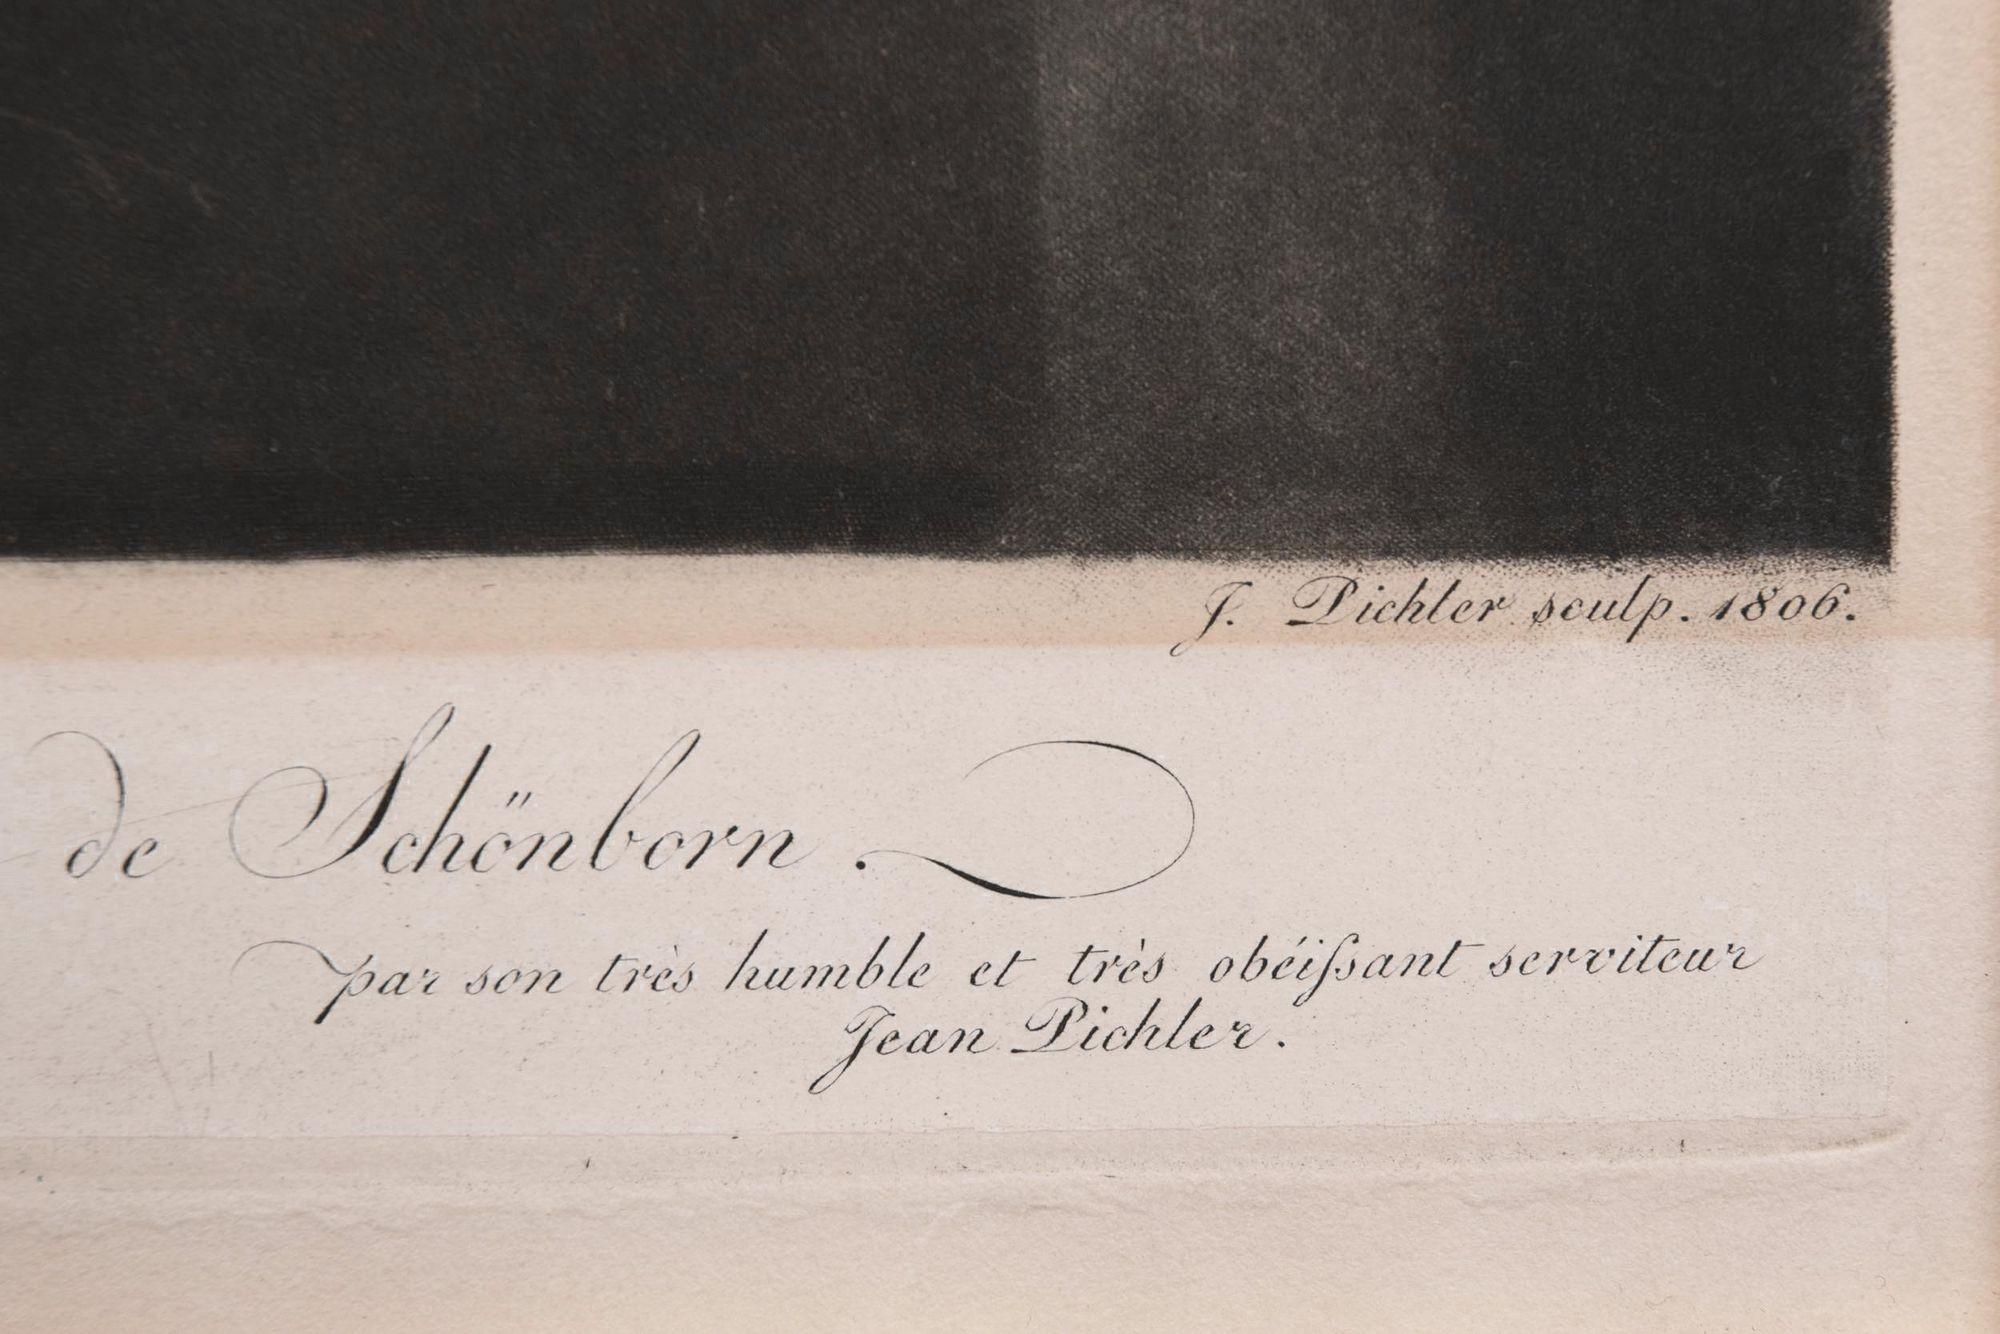 J. Pichler sculp. 1806.
de Schönborn.
par son très humble et très obéiſsant serviteur
Jean Pichler.